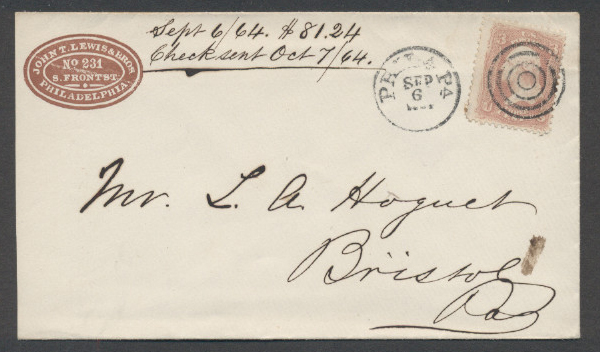 JOHN T. LEWIS & BROS
No 231
S. FRONT ST.
PHILADELPHIA
Sept 6/64. $81.24
Check sent Oct 7/64.
PHILA PA
SEP
6
3 3
Mr. L. A. Hoguet
Bristol
Pa